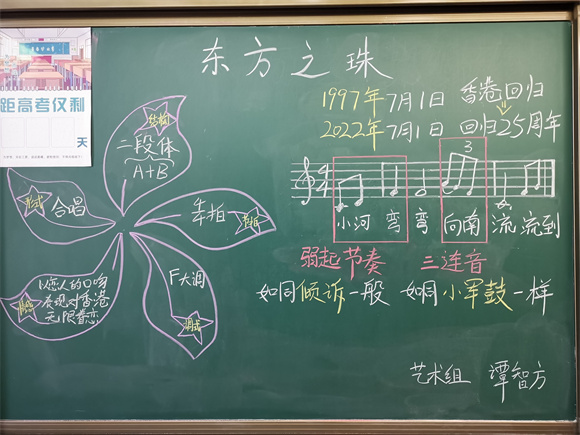 东方之珠
距高考仅剩
天
1997年7月1日 香港回归
2022年7月1日 回归25周年
结构
二段体
A+B
形式
合唱
4/4拍
节拍
F大调
调式
以恋人的口吻
展现对香港
无限眷恋
4/4
3
小河 弯 弯 向南 流 流到
弱起节奏 三连音
如同倾诉一般 如同小军鼓一样
艺术组 谭智方